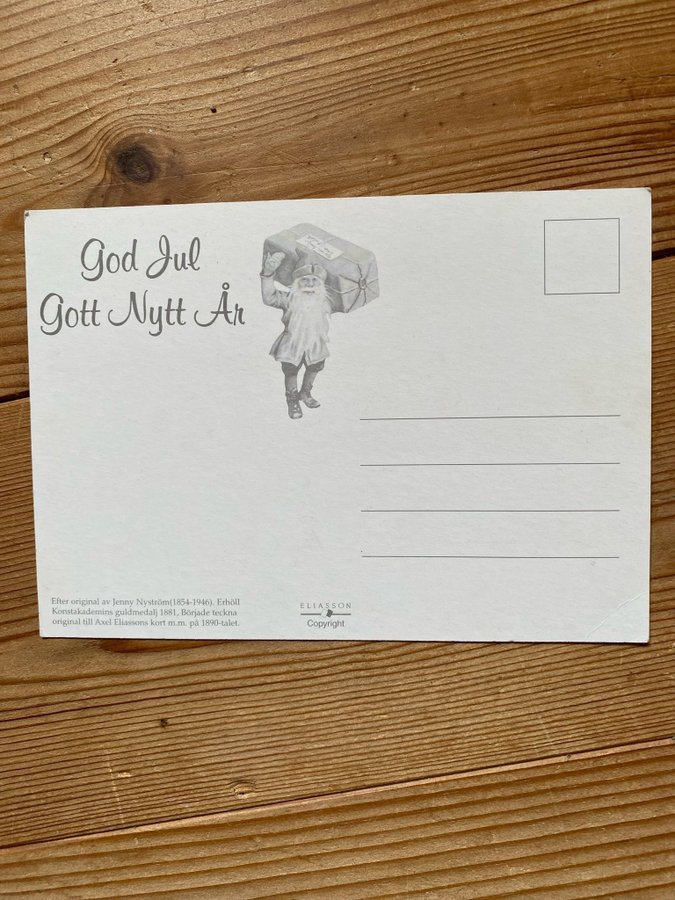 God Jul
Gott Nytt År
Efter original av Jenny Nyström(1854-1946). Erhöll
Konstakademins guldmedalj 1881, Började teckna
original till Axel Eliassons kort m.m. på 1890-talet.
ELIASSON
Copyright